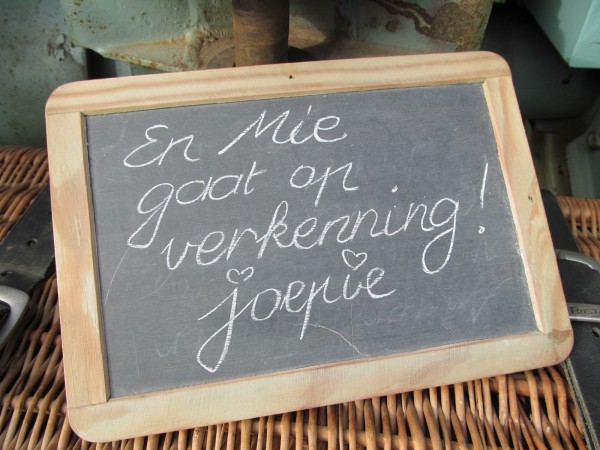 En Mie
gaat op
verkenning!
joepie